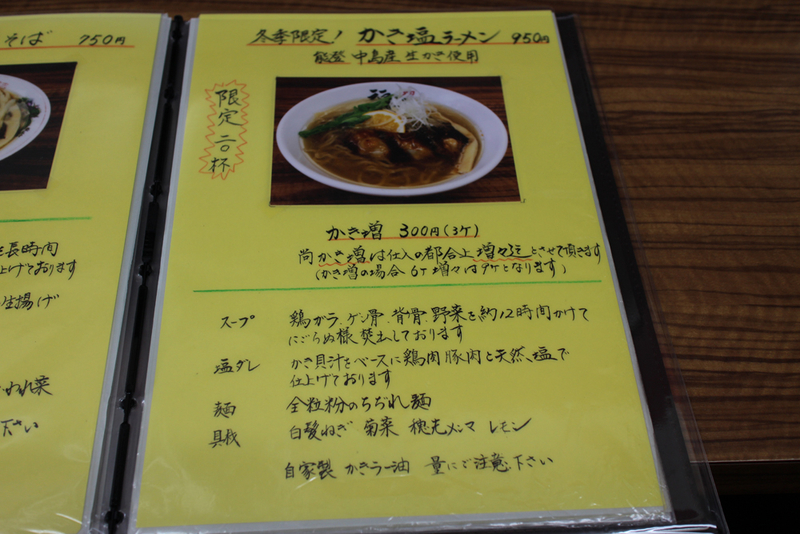 そば 750円
長時間
上げております
生揚げ
われ菜
下さい
冬季限定! かき塩ラーメン 950円
能登 中島産 生かき使用
限定二〇杯
かき増 300円(3ケ)
尚かき増は仕入の都合上増々迄とさせて頂きます
(かき増の場合 6ケ 増々は9ケとなります)
スープ 鶏ガラ、ゲン骨、背骨、野菜を約12時間かけて
にごらぬ様、焚出しております
塩ダレ かき貝汁をベースに鶏肉豚肉と天然塩で
仕上げております
麺 全粒粉のちぢれ麺
具材 白髪ねぎ 菊菜 穂先メンマ レモン
自家製 かきラー油 量にご注意下さい